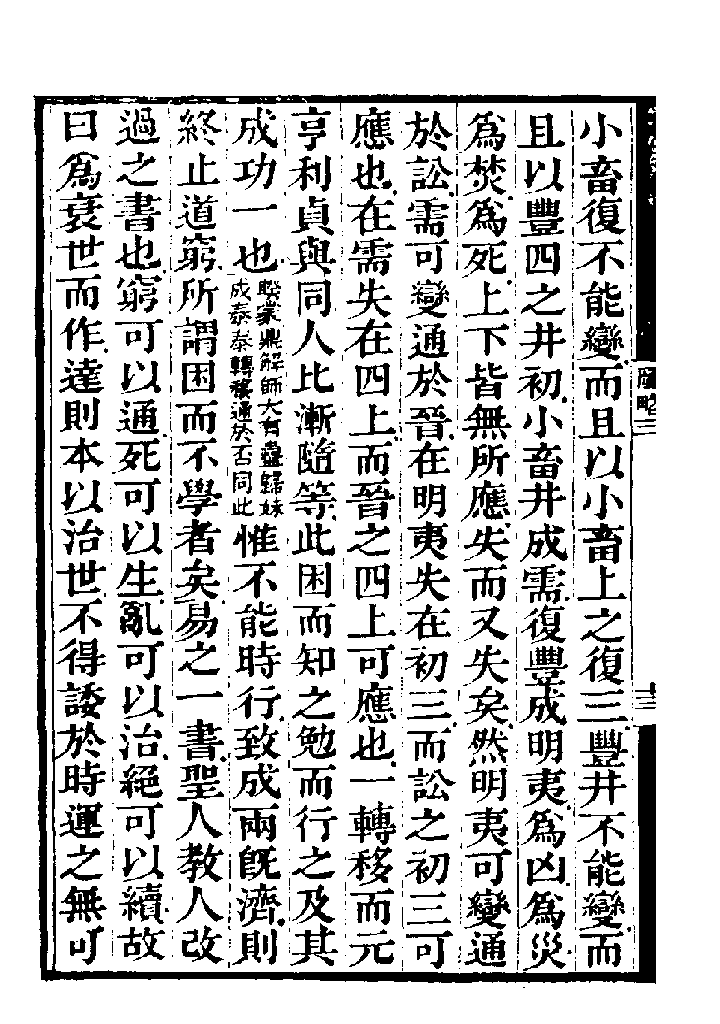 圖略三
十三
小畜復不能變而且以小畜上之復三豐井不能變而
且以豐四之井初小畜井成需復豐成明夷為凶為災
為焚為死上下皆無所應失而又失矣然明夷可變通
於訟需可變通於晉在明夷失在初三而訟之初三可
應也在需失在四上而晉之四上可應也一轉移而元
亨利貞與同人比漸隨等此困而知之勉而行之及其
成功一也睽蒙鼎解師大有蠱歸妹成泰泰轉移通於否同此惟不能時行致成兩既濟則
終止道窮所謂困而不學者矣易之一書聖人教人改
過之書也窮可以通死可以生亂可以治絕可以續故
曰為衰世而作達則本以治世不得諉於時運之無可